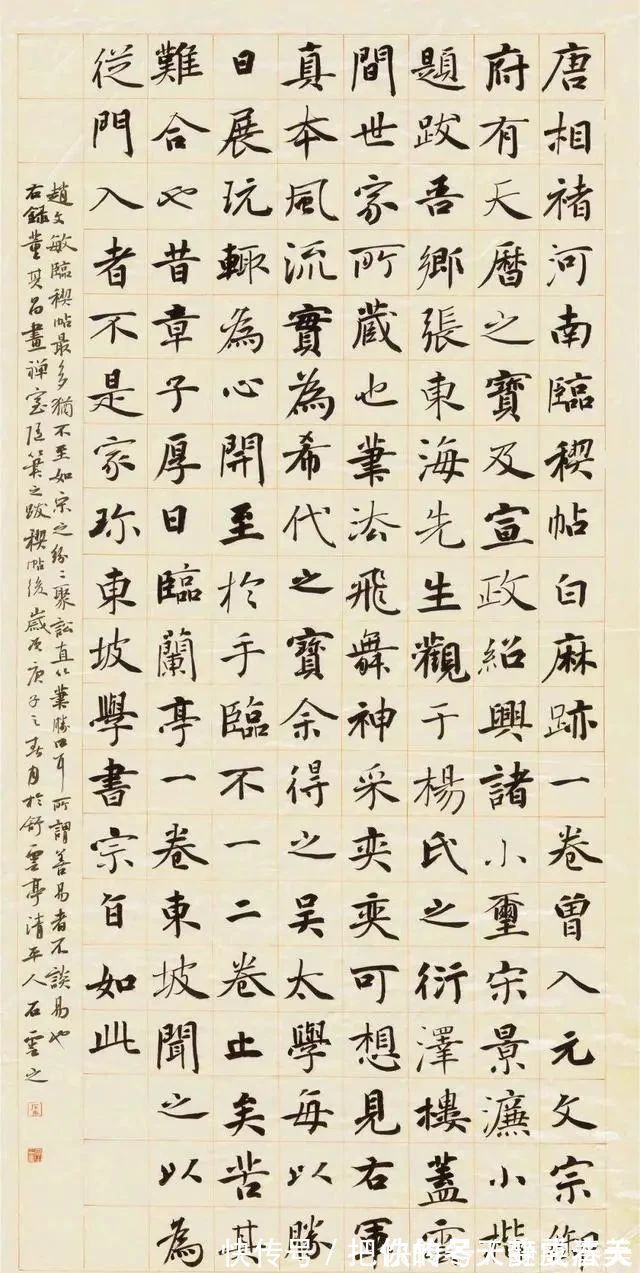 唐相褚河南臨稧帖白麻跡一卷曾入元文宗御
府有天曆之寶及宣政紹興諸小璽宋景濂小楷
題跋吾鄉張東海先生觀于楊氏之衍澤樓蓋雲
間世家所藏也筆法飛舞神采奕奕可想見右軍
真本風流實為希代之寶余得之吳太學每以勝
日展玩輙為心開至於手臨不一二卷止矣苦其
難合也昔章子厚日臨蘭亭一卷東坡聞之以為
從門入者不是家珍東坡學書宗旨如此
趙文敏臨稧帖最多猶不至如宋之紛〻聚訟直以筆勝口耳所謂善易者不談易也
右錄董其昌畫禅室隨筆之跋稧帖後歲次庚子之春月於舒雲亭清平人石雲之
快传号 /